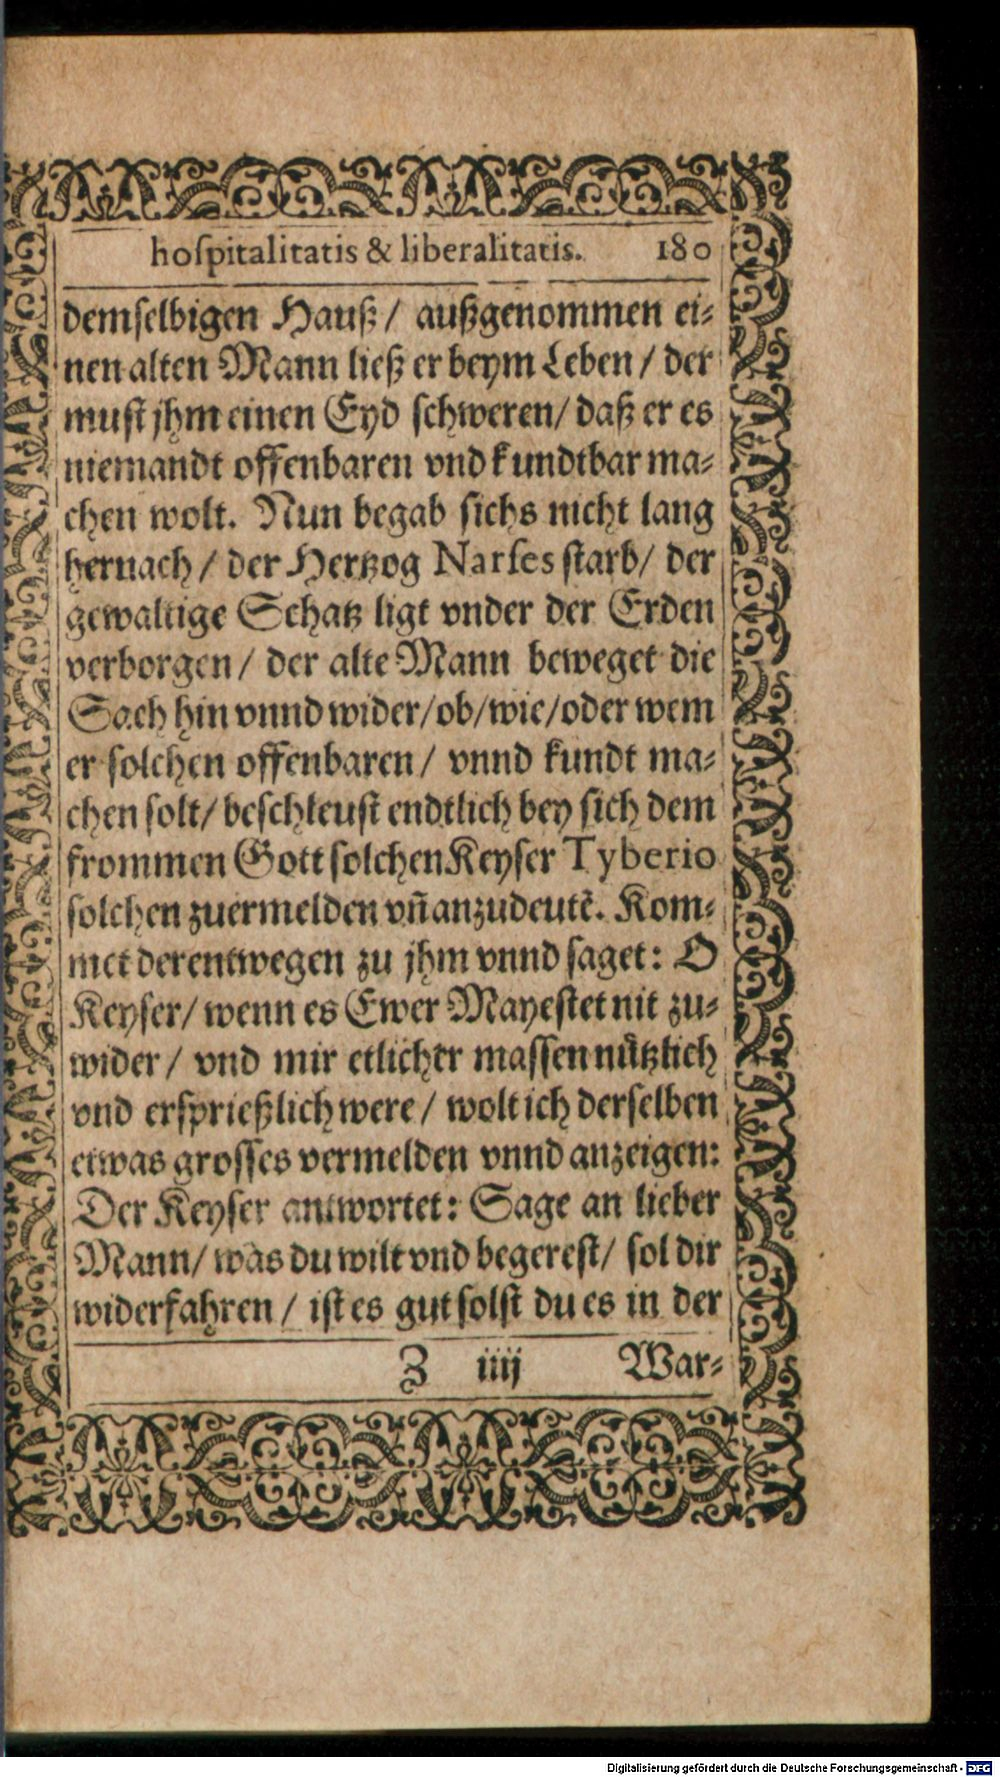 hospitalitatis & liberalitatis. 180
demselbigen Hauß/ außgenommen ei-
nen alten Mann ließ er beym Leben/ der
must jhm einen Eyd schweren/ daß er es
niemandt offenbaren vnd kundtbar ma-
chen wolt. Nun begab sichs nicht lang
hernach/ der Hertzog Narses starb/ der
gewaltige Schatz ligt vnder der Erden
verborgen/ der alte Mann beweget die
Sach hin vnnd wider/ob/wie/oder wem
er solchen offenbaren/ vnnd kundt ma-
chen solt/ beschleust endtlich bey sich dem
frommen Gott solchen Keyser Tyberio
solchen zuermelden vñ anzudeutẽ. Kom-
met derentwegen zu jhm vnnd saget: O
Keyser/ wenn es Ewer Mayestet nit zu-
wider/ vnd mir etlicher massen nützlich
vnd ersprießlich were/ wolt ich derselben
etwas grosses vermelden vnnd anzeigen:
Der Keyser antwortet: Sage an lieber
Mann/ was du wilt vnd begerest/ sol dir
widerfahren/ ist es gut solst du es in der
Z iiij War-
Digitalisierung gefördert durch die Deutsche Forschungsgemeinschaft - DFG